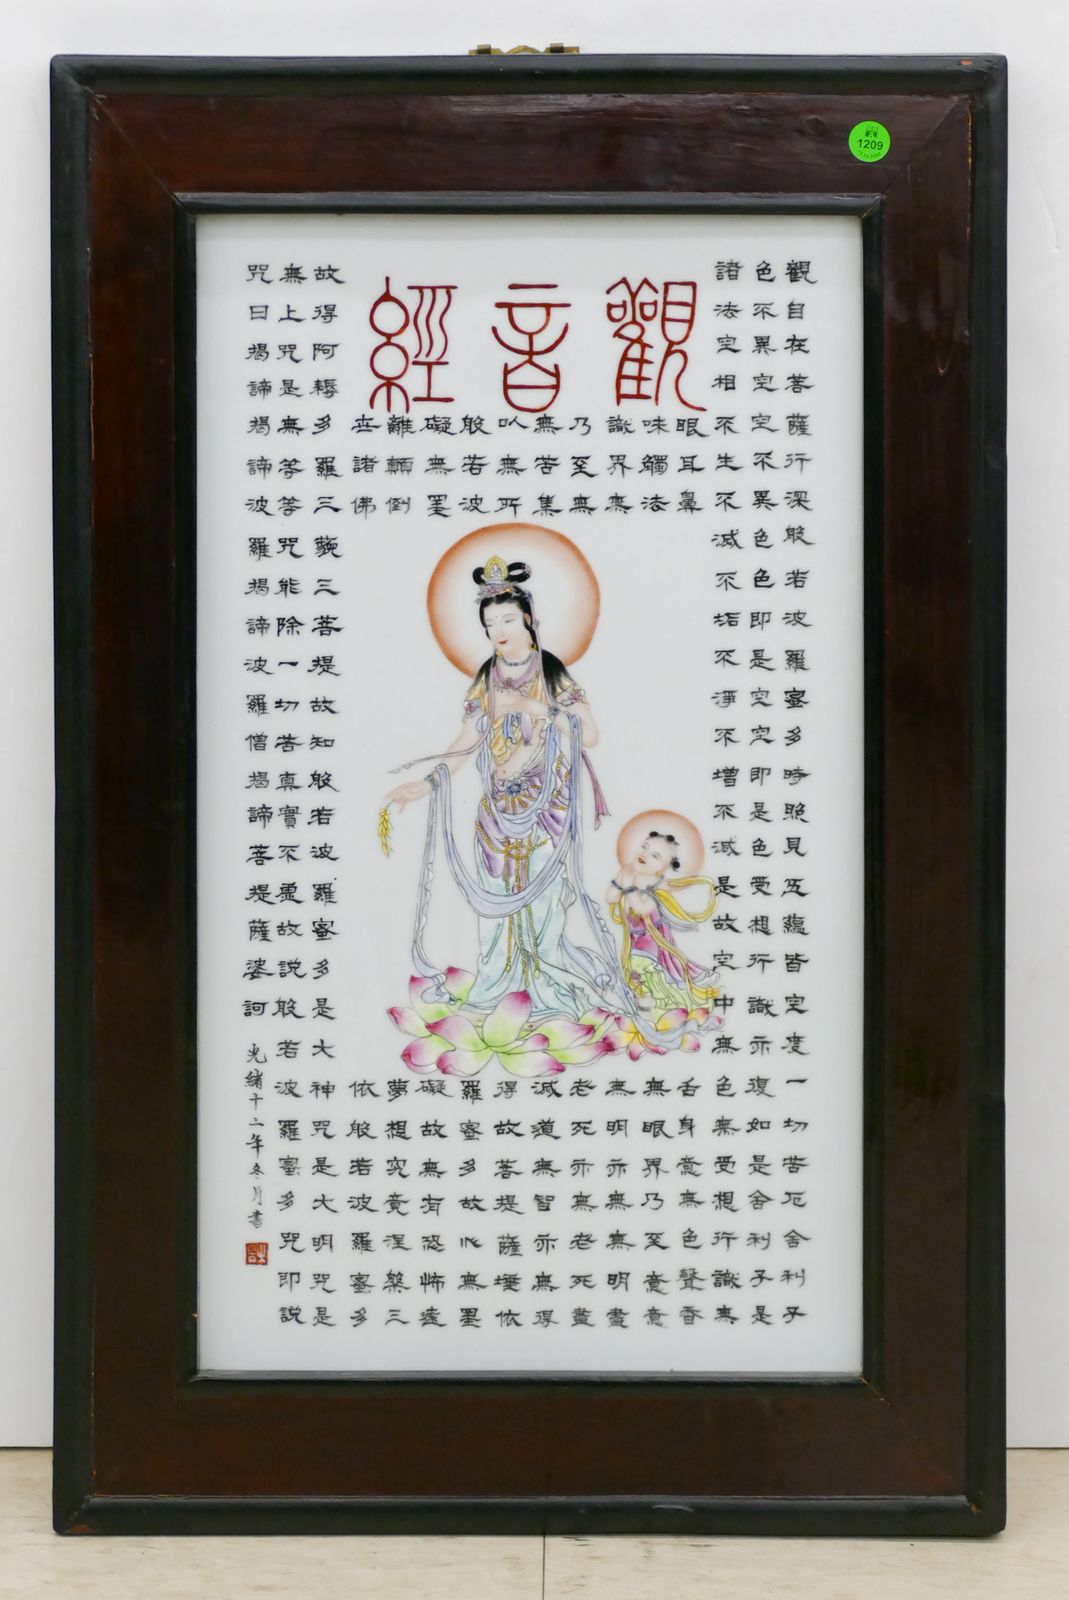 觀音經
觀自在菩薩行深般若波羅蜜多時照見五蘊皆空度一切苦厄舍利子
色不異空空不異色色即是空空即是色受想行識亦復如是舍利子是
諸法空相不生不滅不垢不淨不增不減是故空中無色無受想行識無
眼耳鼻舌身意無色聲香
味觸法無眼界乃至意意
識界無無明亦無無明盡
乃至無老死亦無老死盡
無苦集滅道無智亦無得
以無所得故菩提薩埵依
般若波羅蜜多故心無罣
礙無罣礙故無有恐怖遠
離顛倒夢想究竟涅槃三
世諸佛依般若波羅蜜多
故得阿耨多羅三藐三菩提故知般若波羅蜜多是大神咒是大明咒是
無上咒是無等等咒能除一切苦真實不虛故說般若波羅蜜多咒即說
咒曰揭諦揭諦波羅揭諦波羅僧揭諦菩提薩婆訶
光緒十二年冬月書
1209